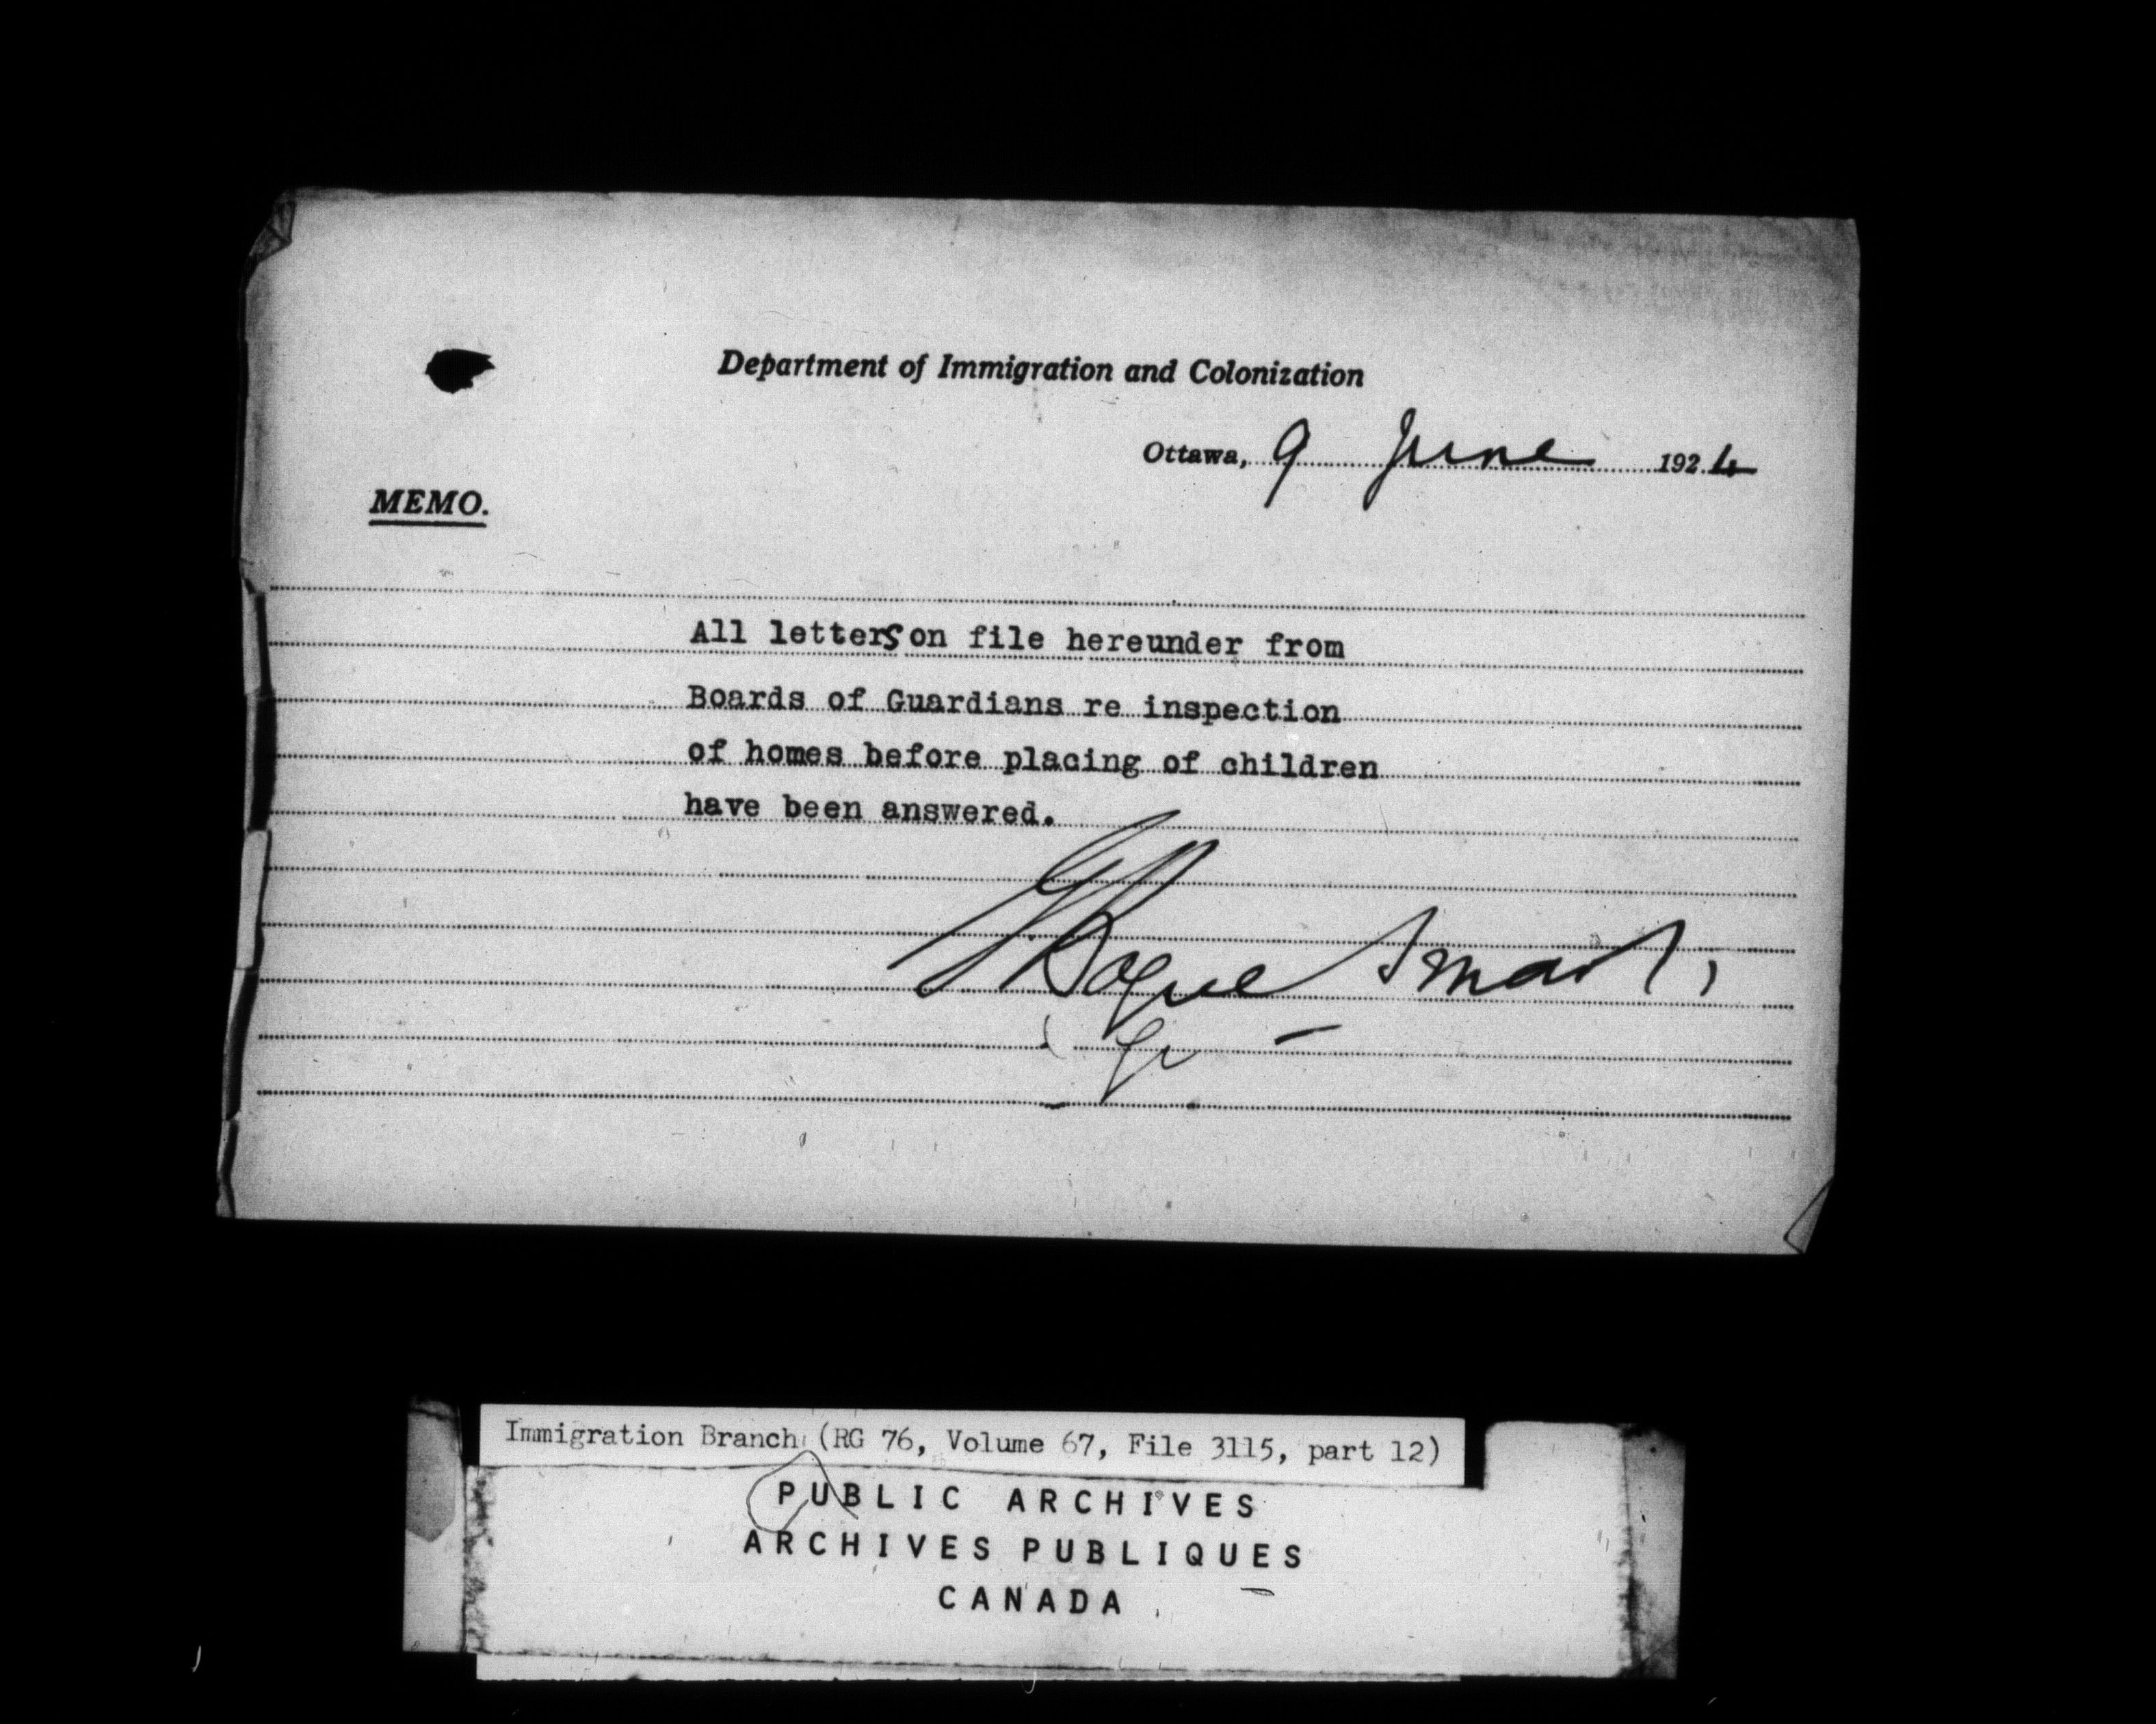 Department of Immigration and Colonization
Ottawa, 9 June 1924
MEMO.
All letters on file hereunder from
Boards of Guardians re inspection
of homes before placing of children
have been answered.
G Bogue Smart,
Immigration Branch (RG 76, Volume 67, File 3115, part 12)
PUBLIC ARCHIVES
ARCHIVES PUBLIQUES
CANADA